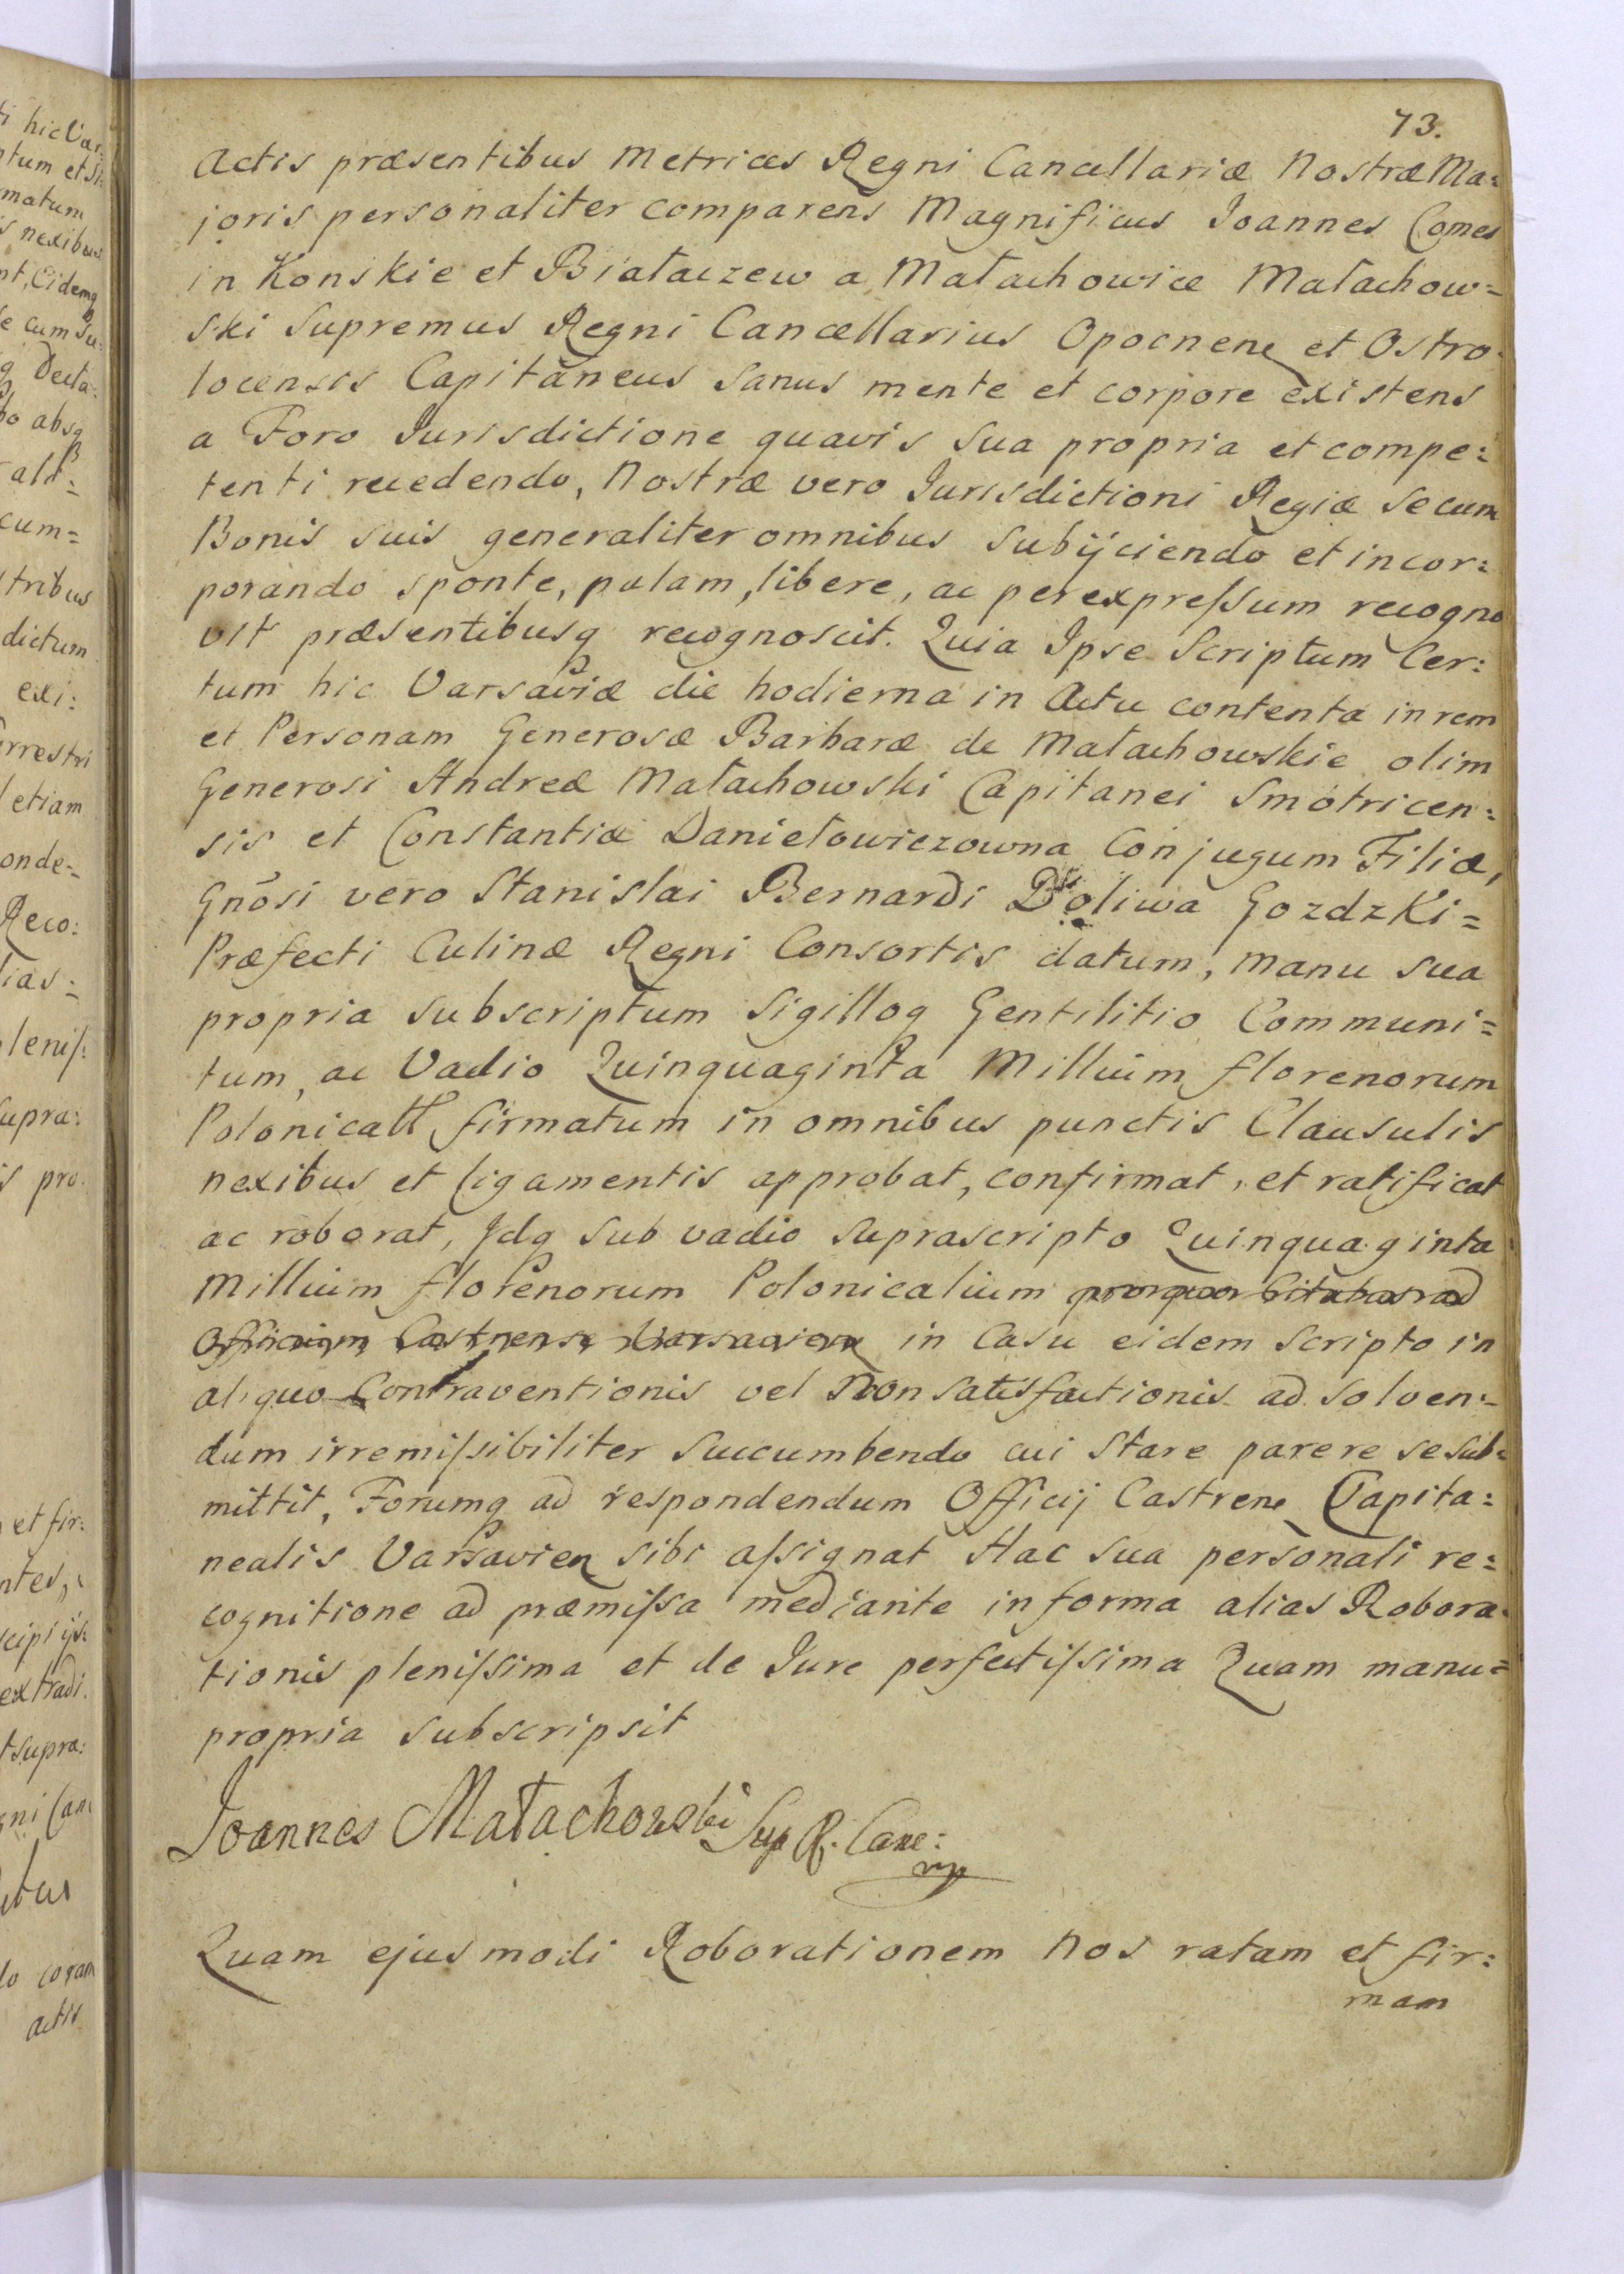 73.
Actis præsentibus Metrices Regni Cancellariæ Nostræ Ma:
joris personaliter comparens Magnificus Joannes Comes
in Konskie et Białaczew a Małachowice Małachow=
ski Supremus Regni Cancellarius Opocnen et Ostro:
locensis Capitaneus sanus mente et corpore existens
a Foro Jurisdictione quavis sua propria et compe:
tenti recedendo, Nostræ vero Jurisdictioni Regiæ se cum
Bonis suis generaliter omnibus subijciendo et incor:
porando sponte, palam, libere, ac per expreſsum recogno
vit præsentibusq recognoscit. Quia Ipse Scriptum Cer:
tum hic Varsaviæ die hodierna in Actu contenta in rem
et Personam Generosæ Barbaræ de Małachowskie olim
Generosi Andreæ Małachowski Capitanei Smotricen:
sis et Constantiæ Daniełowiczowna Conjugum Filiæ,
Gnōsi vero Stanislai Bernardi Doliwa Gozdzki=
Præfecti Culinæ Regni Consortis datum, manu sua
propria subscriptum Sigilloq Gentilitio Communi=
tum, ac Vadio Quinquaginta Millium florenorum
Polonicall firmatum in omnibus punctis Clausulis
nexibus et ligamentis approbat, confirmat, et ratificat
ac roborat, Idq sub vadio suprascripto Quinquaginta
Millium florenorum Polonicalium
Officium Castrense Varsavien in Casu eidem Scripto in
aliquo Contraventionis vel Non satisfactionis ad solven:
dum irremiſsibiliter succumbendo cui stare parere se sub=
mittit, Forumq ad respondendum Officij Castren Capita:
nealis Varsavien sibi aſsignat Hac sua personali re:
cognitione ad præmiſsa mediante in forma alias Robora:
tionis pleniſsima et de Jure perfectiſsima Quam manu=
propria subscripsit
Joannes Małachowski Sup R. Canc:
mp
Quam ejusmodi Roborationem Nos ratam et fir:
mam